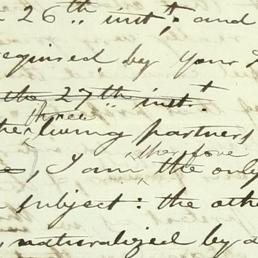 26th inst; and
required by your
the 27th inst.
three
living partners
therefore
, I am the only
subject: the othe
, naturalized by a